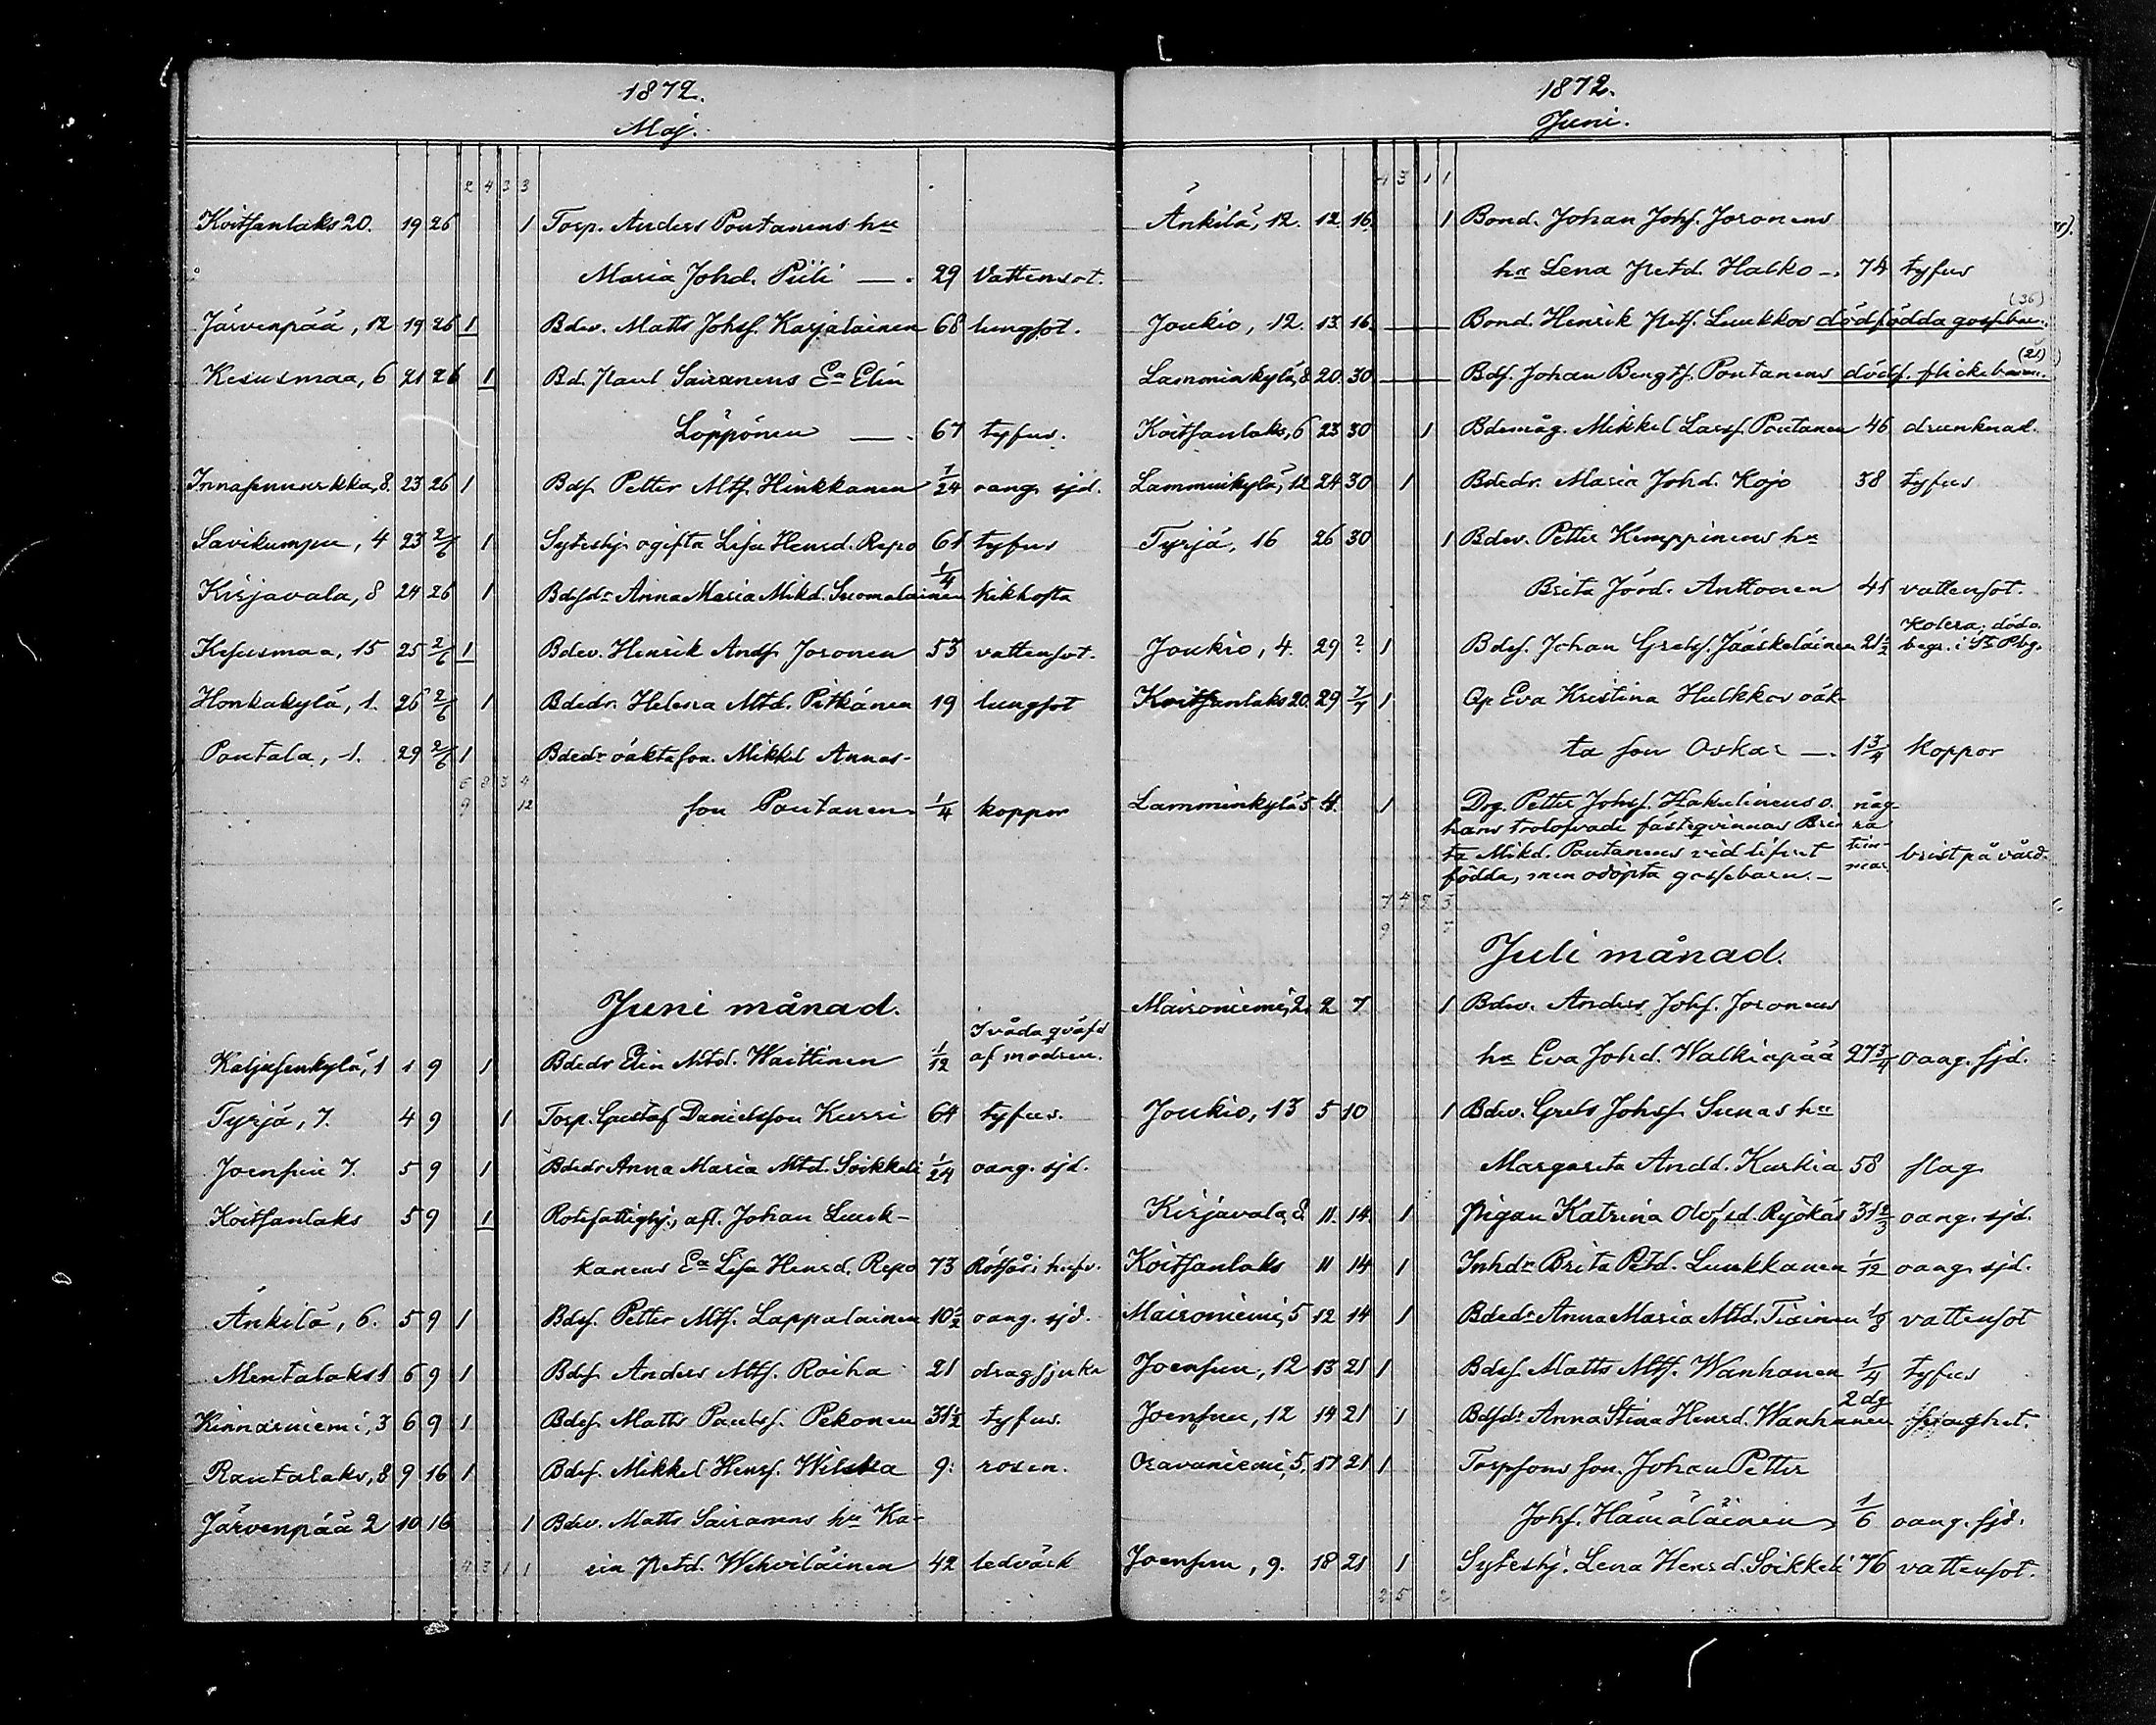 1872.
Maj.
2 4 3 3
Koitsanlaks 20. 19 26 1 Torp. Anders Pontanens hu
Maria Johd. Piili —. 29 Vattensot.
Järvenpää, 12 19 26 1 Bdev. Matts Johsf. Karjalainen 68 lungsot.
Kesusmaa, 6 21 26 1 Bd. Paul Sairanens Ea Elin
Löppönen —. 67 tyfus.
23 26 1 Bdsf Petter Mtf. Hinkkanen 1/24 oang. sjd.
Savikumpu, 4 23 2/6 1 Syteshj. ogifta Lisa Hensd. Repo 61 tyfus
Kirjavala, 8 24 26 1 Bdsdr Anna Maria Mikd. Suomalainen 1/4 kikhosta
Kesusmaa, 15 25 2/6 1 Bdev. Henrik Andsf. Joronen 53 vattensot.
Honkakylä, 1. 26 2/6 1 Bdedr. Helena Mtd. Pitkänen 19 lungsot
Pontala, 1. 29 2/6 1 Bdedr oäkta son Mikkel Annas-
6 8 3 4
9 12
son Pontanen 1/4 koppor
Juni månad.
Kaljusenkylä, 1 1 9 1 Bdedr Elin Mtd. Waittinen 1/12 I våda qväfd
af modren.
Tyrjä, 7. 4 9 1 Torp. Gustaf Danielsson Kurri 64 tyfus.
Joensuu 7. 5 9 1 Bdedr Anna Maria Mtd. Soikkeli 1/24 oang. sjd.
Koitsanlaks 5 9 1 Rotefattighj., afl. Johan Luuk-
kanens Ea Lisa Hensd. Repo 73
Änkilä, 6. 5 9 1 Bdsf. Petter Mtf. Lappalainen 10 1/2 oang. sjd.
Mentalaks 1 6 9 1 Bdsf Anders Mtf. Roiha 21 dragsjuka
Kinnarniemi, 3 6 9 1 Bdsf. Matts Paulsf. Pekonen 31 1/2 tyfus.
Rautalaks, 8 9 16 1 Bdsf. Mikkel Hensf. Wilska 9. rosen.
Järvenpää 2 10 16 1 Bdev. Matts Sairanens hu Ka-
4 3 1 1 rin Petd. Wehviläinen 42 ledvärk
1872.
Juni.
4 3 1 1
Änkilä, 12. 12 16 1 Bond. Johan Johsf. Joronens
hu Lena Petd. Halko —. 74 tyfus
Joukio, 12. 13 16 — Bond. Henrik Petf. Luukkos dödfödda gossebarn. (36)
Lamminkylä, 8 20 30 — Bdsf. Johan Bengtsf. Pontanens dödf. flickebarn. (21)
Koitsanlaks, 6 23 30 1 Bdemåg. Mikkel Larsf. Pontanen 46 drunknad.
Lamminkylä, 12 24 30 1 Bdedr. Maria Johd. Kojo 38 tyfus
Tyrjä, 16 26 30 1 Bdev. Petter Kemppinens hu
Brita Jörd. Anttonen 41 vattensot.
Joukio, 4. 29 ? 1 Bdsf. Johan Grelsf. Jääskeläinen 21 1/2 Kolera; död o.
begr. i St. Pbg.
Koitsanlaks 20. 29 7/7 1 Qp Eva Kristina Hulkkos oäk-
ta son Oskar —. 1 3/4 koppor
Lamminkylä 5 4. 1 Drg. Petter Johsf. Hakulinens o. någ-
hans trolofvade fästeqvinnas Bri- ra
ta Mikd. Pontanens vid lifvet tim-
mar brist på vård.
födda, men odöpta gossebarn. —
7 4 2 3
9
Juli månad.
Maironiemi, 2. 2 7 1 Bdev. Anders Johsf. Joronens
hu Eva Johd. Walkiapää 27 3/4 oang. sjd.
Joukio, 13 5 10 1 Bdev. Grels Johsf. Sunas hu
Margareta Andd. Kurkia 58 slag
Kirjavala, 8. 11. 14 1 Pigan Katrina Olofsd. Ryökäs 31 2/3 oang. sjd.
Koitsanlaks 11 14 1 Inhdr Brita Petd. Luukkanen 1/12 oang. sjd.
Maironiemi, 5 12 14 1 Bdedr Anna Maria Mtd. Tiainen 1/3 vattensot
Joensuu, 12 13 21 1 Bdsf. Matts Mtf. Wanhanen 1/4 tyfus
Joensuu, 12 14 21 1 Bdsdr Anna Stina Hensd. Wanhanen 2 dg
Oravaniemi, 5. 17 21 1 Torpsons son Johan Petter
Johsf. Hämäläinen 1/6 oang. sjd.
Joensuu, 9. 18 21 1 Syteshj. Lena Hensd. Soikkeli 76 vattensot.
2 5 2